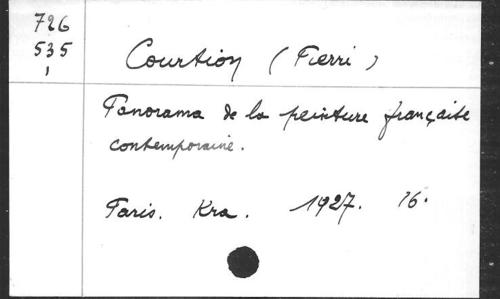 726
535
1
Courtion (Pierre)
Panorama de la peinture française
contemporaine.
Paris. Kra. 1927. 16.